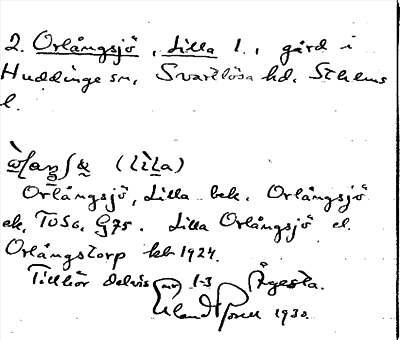 2. Orlångsjö, Lilla l., gård i
Huddinge sn, Svartlösa hd, Sthlms
l.
(lìla)
Orlångsjö, Lilla bek. Orlångsjö
ek. TOSG. G75. Lilla Orlångsjö el.
Orlångstorp kbl 1924.
Tillhör delvis nr 1-3 Ågesta.
Erland 1930.